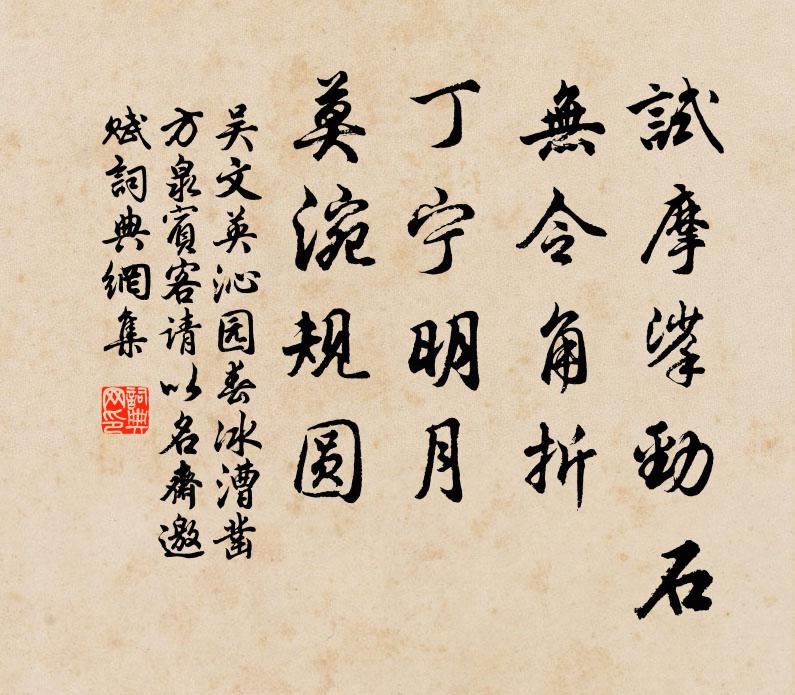 試摩挲勁石
無令角折
丁宁明月
莫涴规圆
吴文英沁园春冰漕凿
方泉賓客请以名齋邀
赋詞典網集
詞典网印